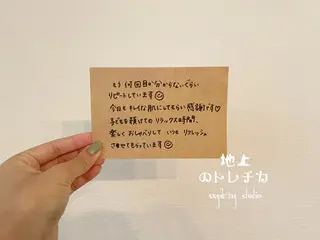 もう何回目か分からないぐらい
リピートしています☺
今日もキレイな肌にしてもらい感謝です♡
子どもを預けてのリラックス時間、
楽しくおしゃべりして いつもリフレッシュ
させてもらっています☺
地上
のトレチカ
waxing studio